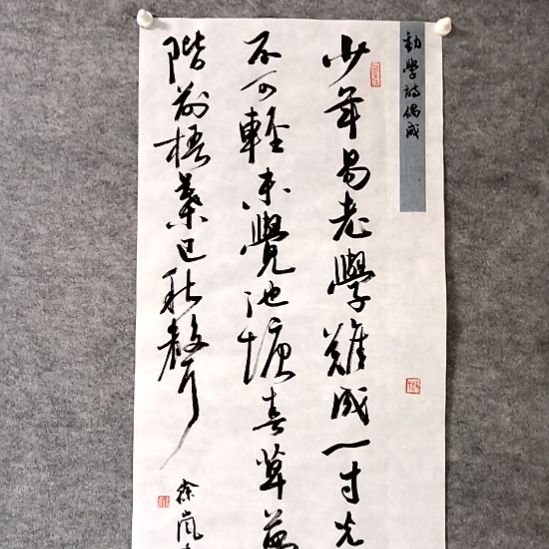 勸學詩偶成
少年易老學難成一寸光
不可輕未覺池塘春草夢
階前梧葉已秋聲
徐嵐